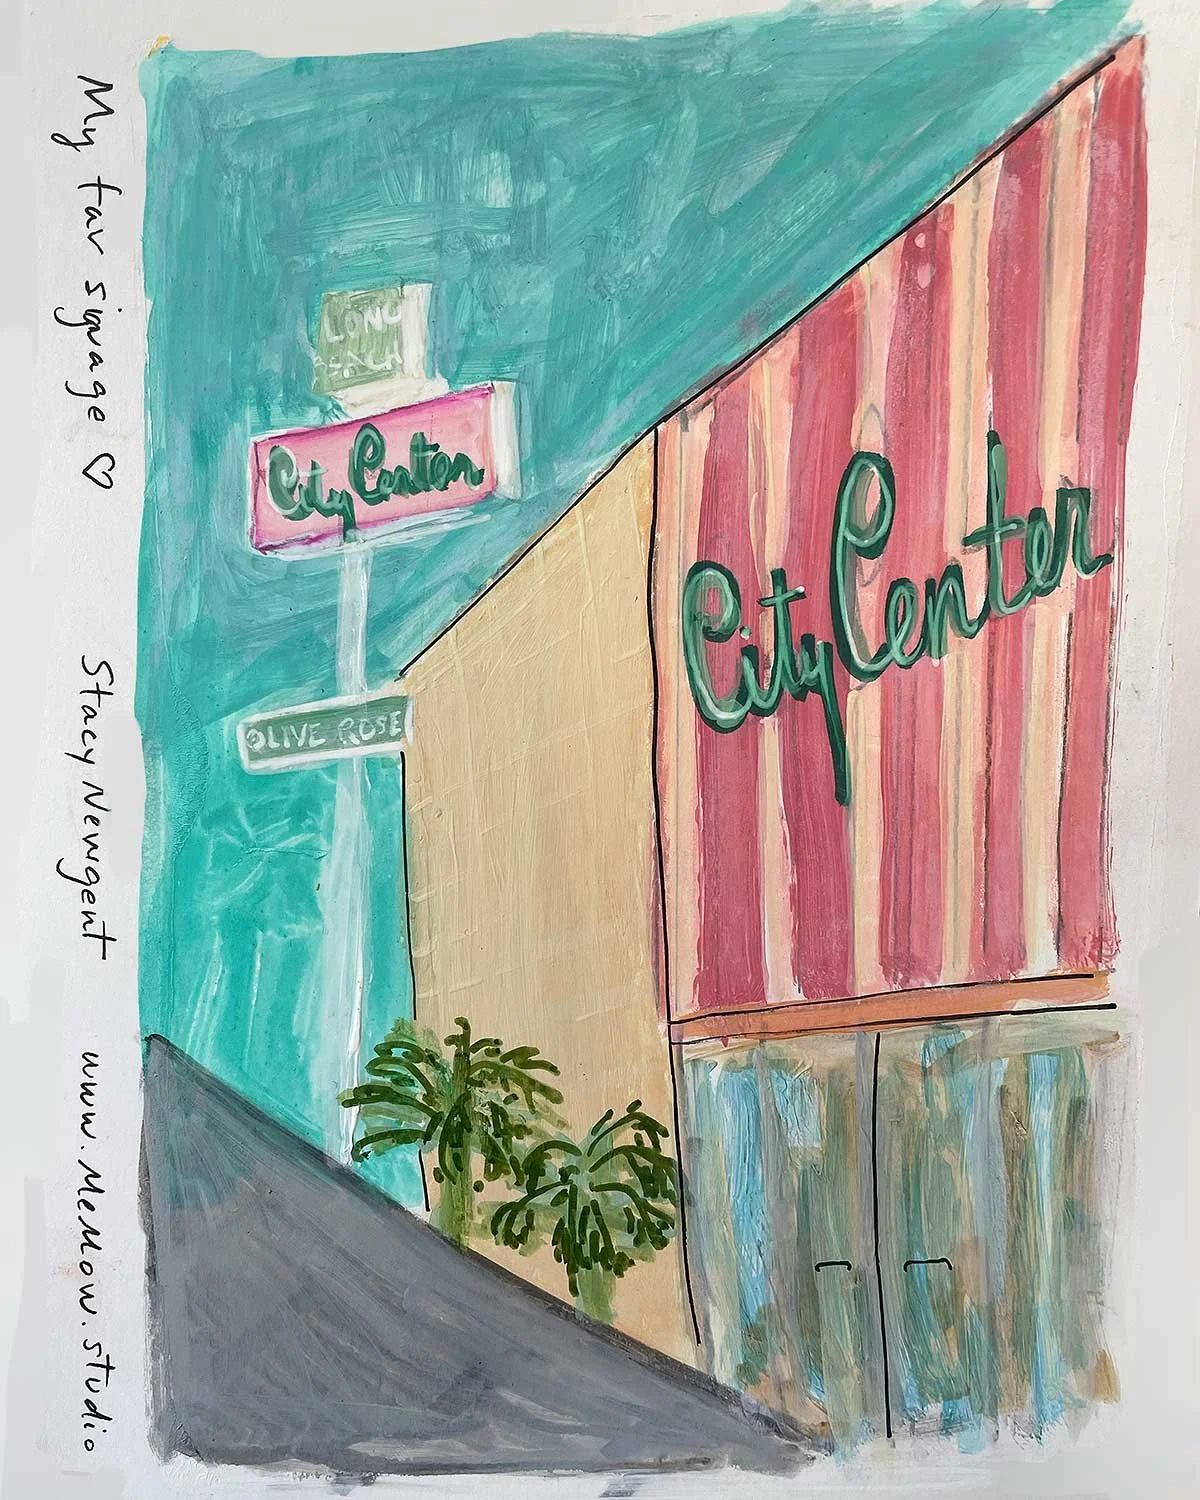 My fav signage ♡
Stacy Newgent
www.MeMow.studio
LONG
BEACH
City Center
OLIVE ROSE
City Center